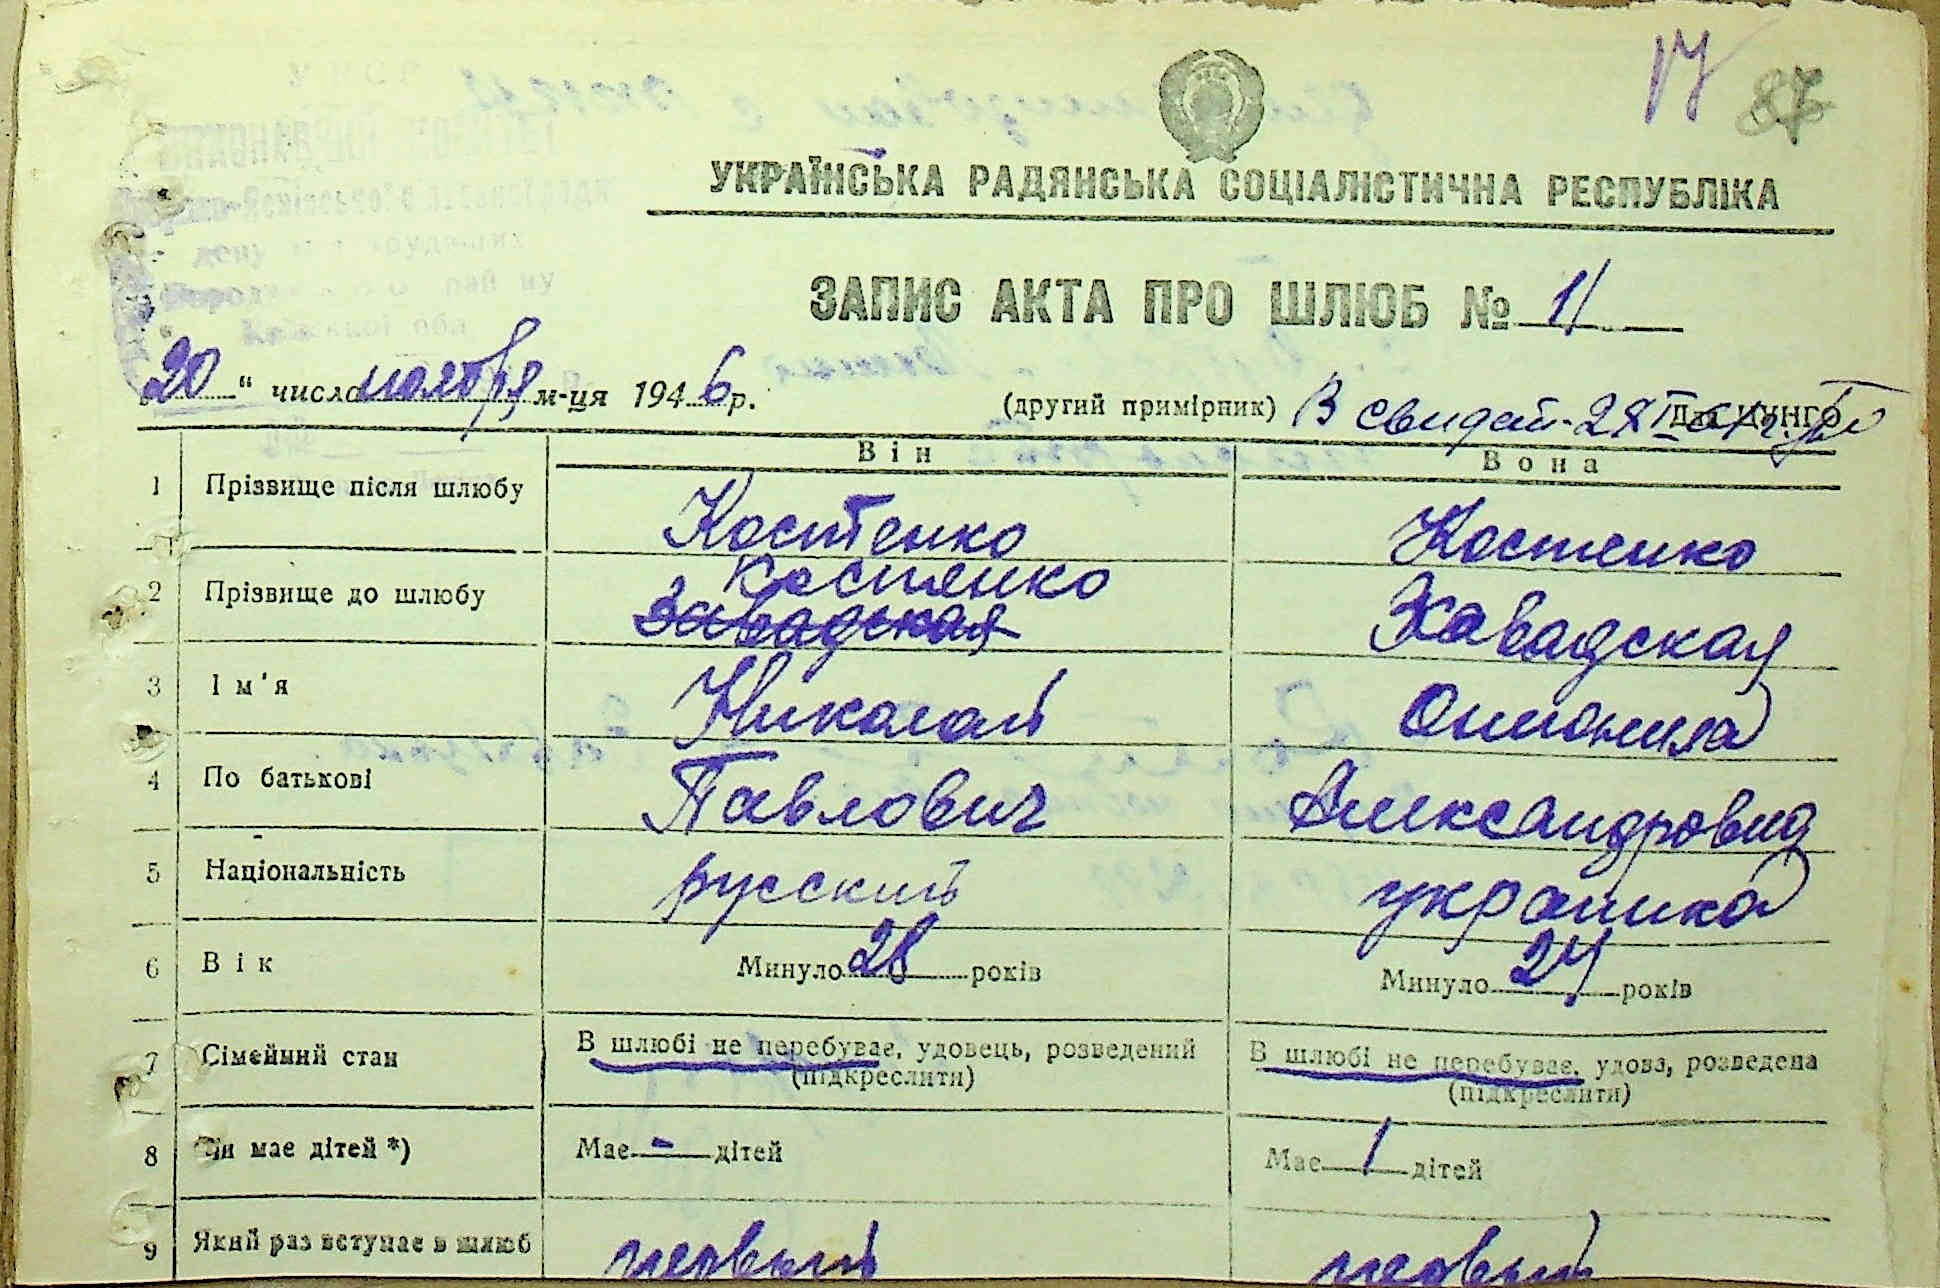 17 87
УКРАЇНСЬКА РАДЯНСЬКА СОЦІАЛІСТИЧНА РЕСПУБЛІКА
ЗАПИС АКТА ПРО ШЛЮБ № 11
20 " число ноября м-ця 1946 р. (другий примірник)
Він Вона
1 Прізвище після шлюбу Костенко Костенко
2 Прізвище до шлюбу Костенко Завадская Завадская
3 Ім'я Николай
4 По батькові Павлович Александровна
5 Національність русский украинка
6 Вік Минуло 28 років Минуло 24 років
7 Сімейний стан В шлюбі не перебуває, удовець, розведений В шлюбі не перебуває, удова, розведена
(підкреслити) (підкреслити)
8 Чи має дітей *) Має - дітей Має 1 дітей
9 Який раз вступає в шлюб первый первый